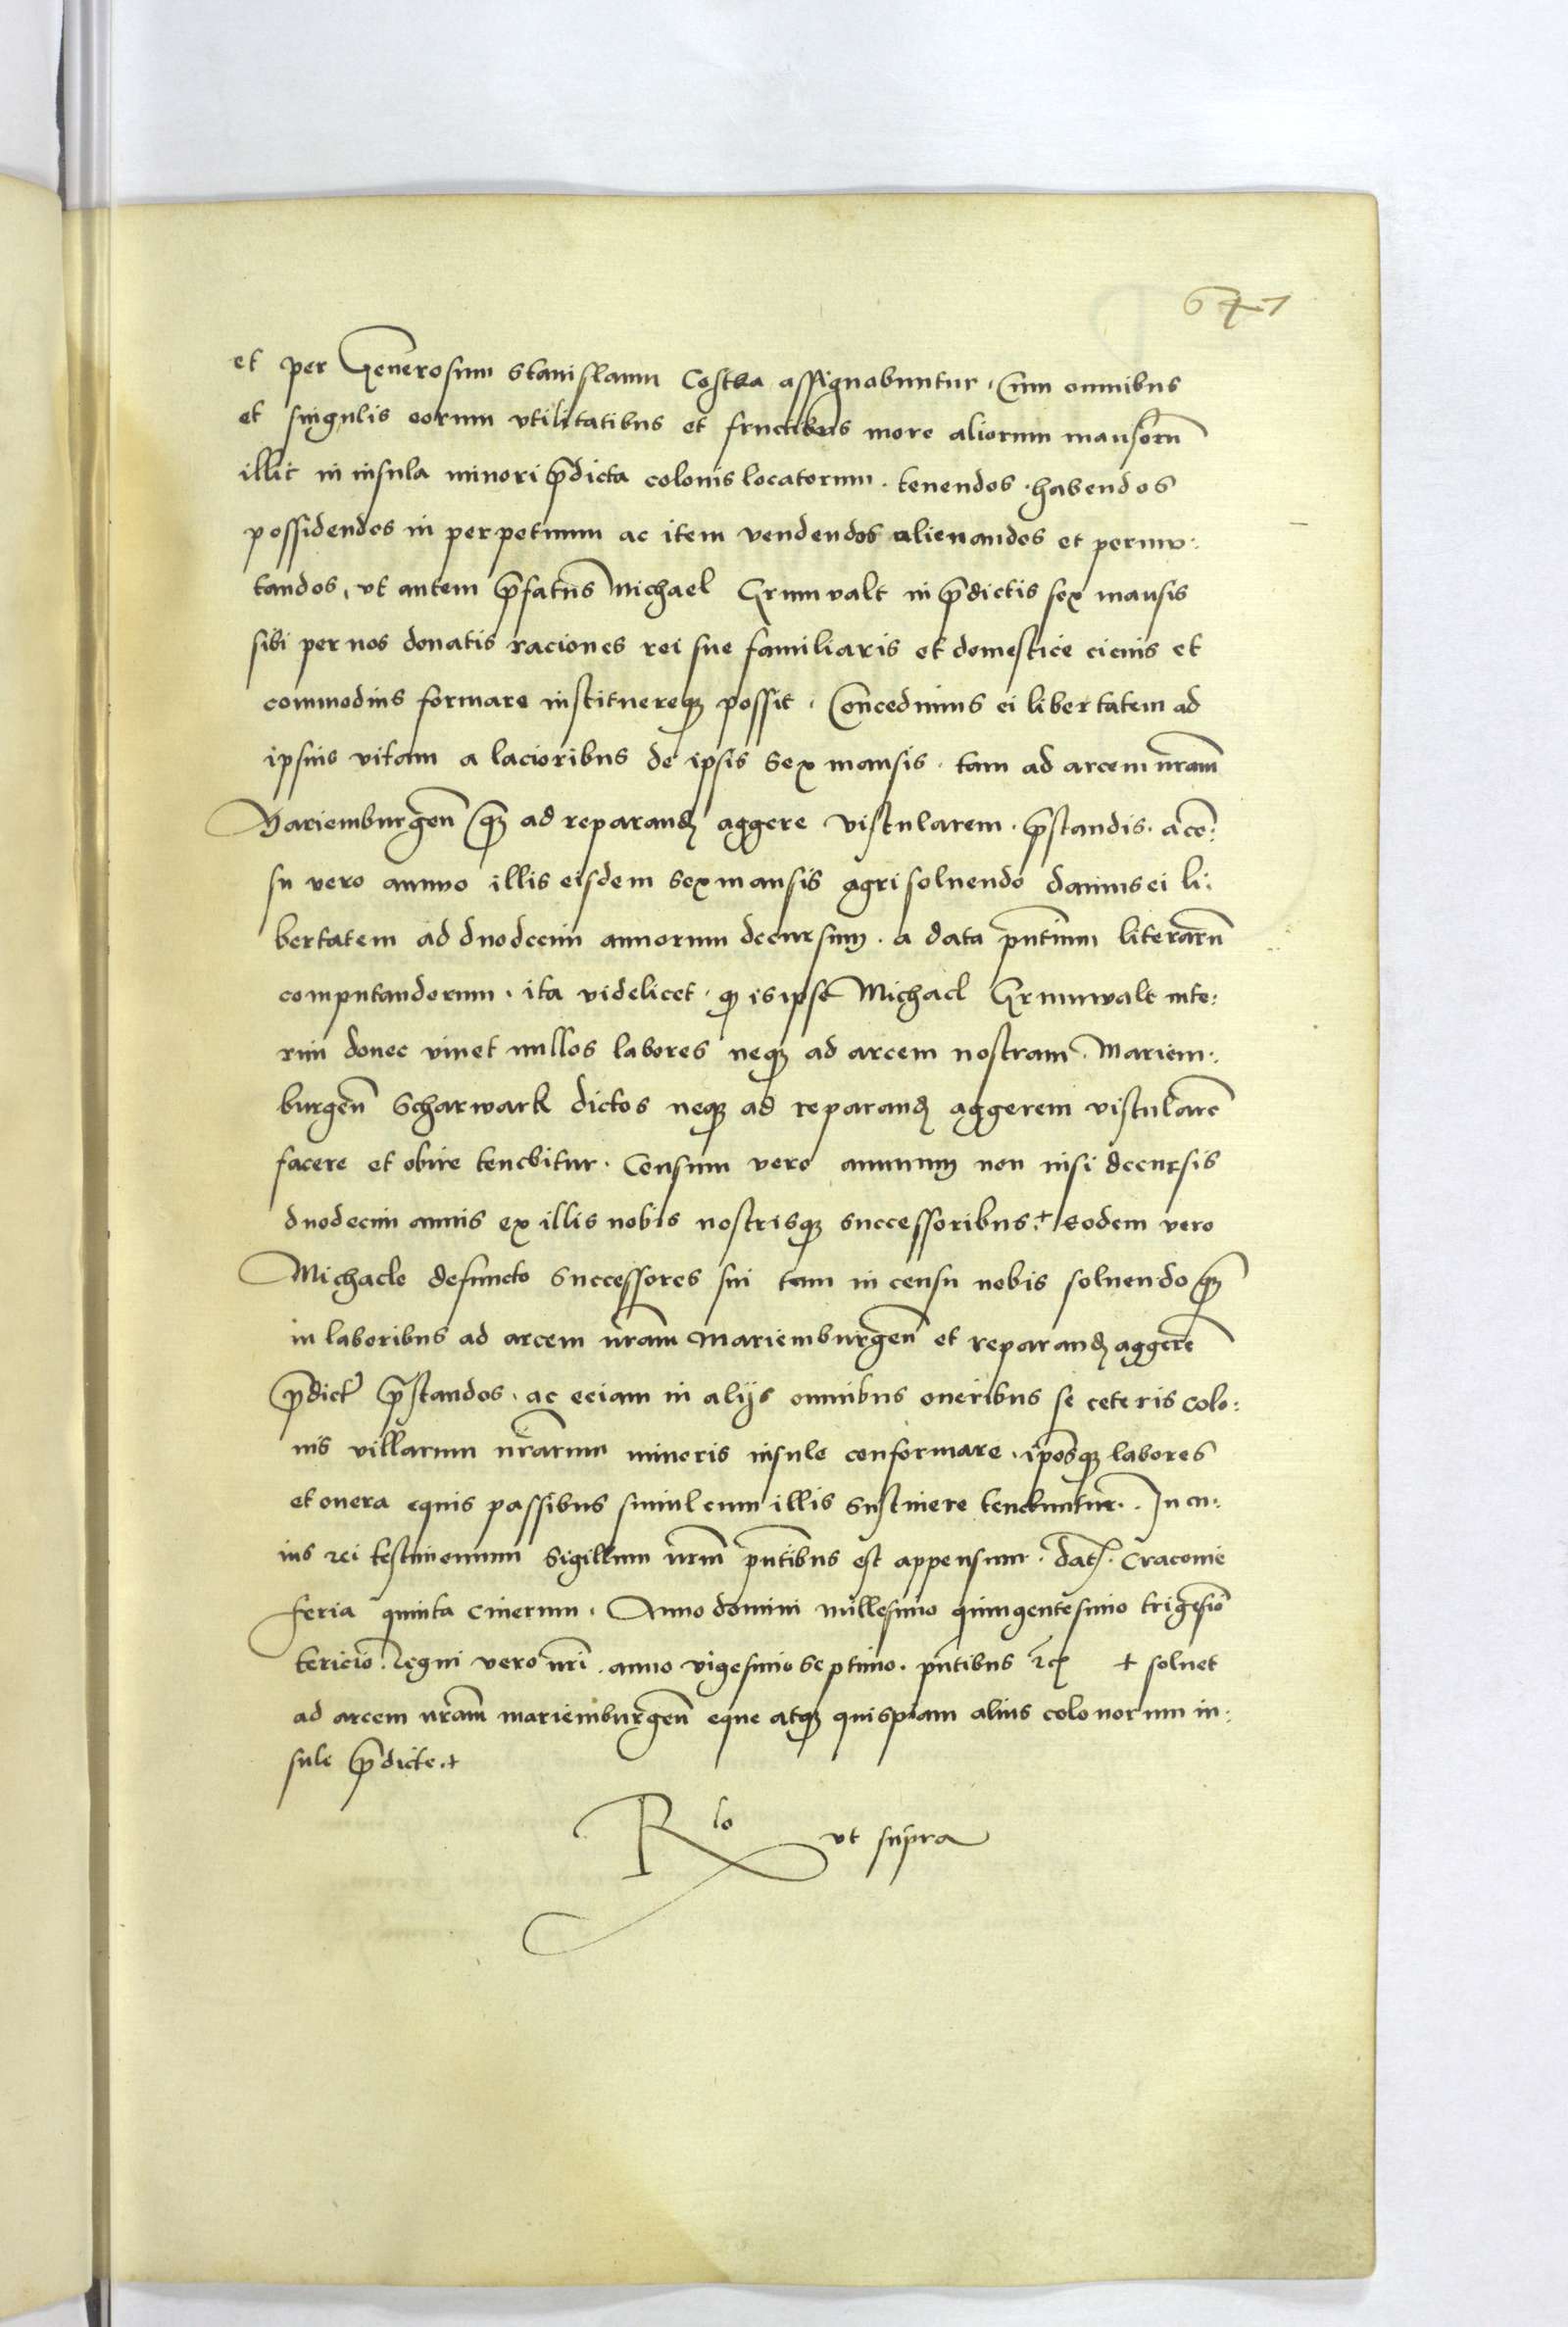 671
et per Generosum Stanislaum Costka assignabuntur. Cum omnibus
et singulis eorum vtilitatibus et fructibus more aliorum mansorũ
illic in insula minori p̃dicta colonis locatorum. tenendos. habendos
possidendos in perpetuum ac item vendendos alienandos et permu:
tandos, vt autem p̃fatus Michael Grunvalt in p̃dictis sex mansis
sibi per nos donatis raciones rei sue familiaris et domestice cicius et
commodius formare instituereq₃ possit. Concedimus ei libertatem ad
ipsius vitam a lacioribus de ipsis sex mansis. tam ad arcem nr̃am
Mariemburgeñ q̃₃ ad reparand₃ aggere vistularem. p̃standis. a cẽ:
su vero annuo illis eisdem sex mansis agri soluendo damus ei li:
bertatem ad duodecim annorum decursum. a data pñtium literarũ
computandorum. ita videlicet. q₃ is ipse Michael Grunwalt inte:
rim donec viuet nullos labores neq₃ ad arcem nostram Mariem:
burgeñ Scharwark dictos neq₃ ad reparand₃ aggerem vistularẽ
facere et obire tenebitur. Censum vero annuum non nisi decursis
duodecim annis ex illis nobis nostrisq₃ successoribus.+ Eodem vero
Michaele defuncto successores sui tam in censu nobis soluendo q̃₃
in laboribus ad arcem nr̃am Mariemburgeñ et reparand₃ aggerẽ
p̃dict p̃standos. ac eciam in alijs omnibus oneribus se ceteris colo:
nis villarum nr̃arum minoris insule conformare. ip̃osq₃ labores
et onera equis passibus simul cum illis sustinere tenebuntur. In cu:
ius rei testimonium Sigillum nr̃m pñtibus est appensum. Dat. Cracovie
feria quinta Cinerum. Anno domini millesimo quingentesimo trigesiõ
tericio. Regni vero nr̃i. anno vigesimo septimo. pñtibus ꝛc + soluet
ad arcem nr̃am mariemburgeñ eque atq₃ quispiam alius colonorum in:
sule p̃dicte.+
Rlo vt supra